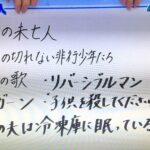 の未亡人
の切れない非行少年たち
の歌：リバーシブルマン
ガーン：子供を殺してくださ
の夫は冷凍庫に眠っている